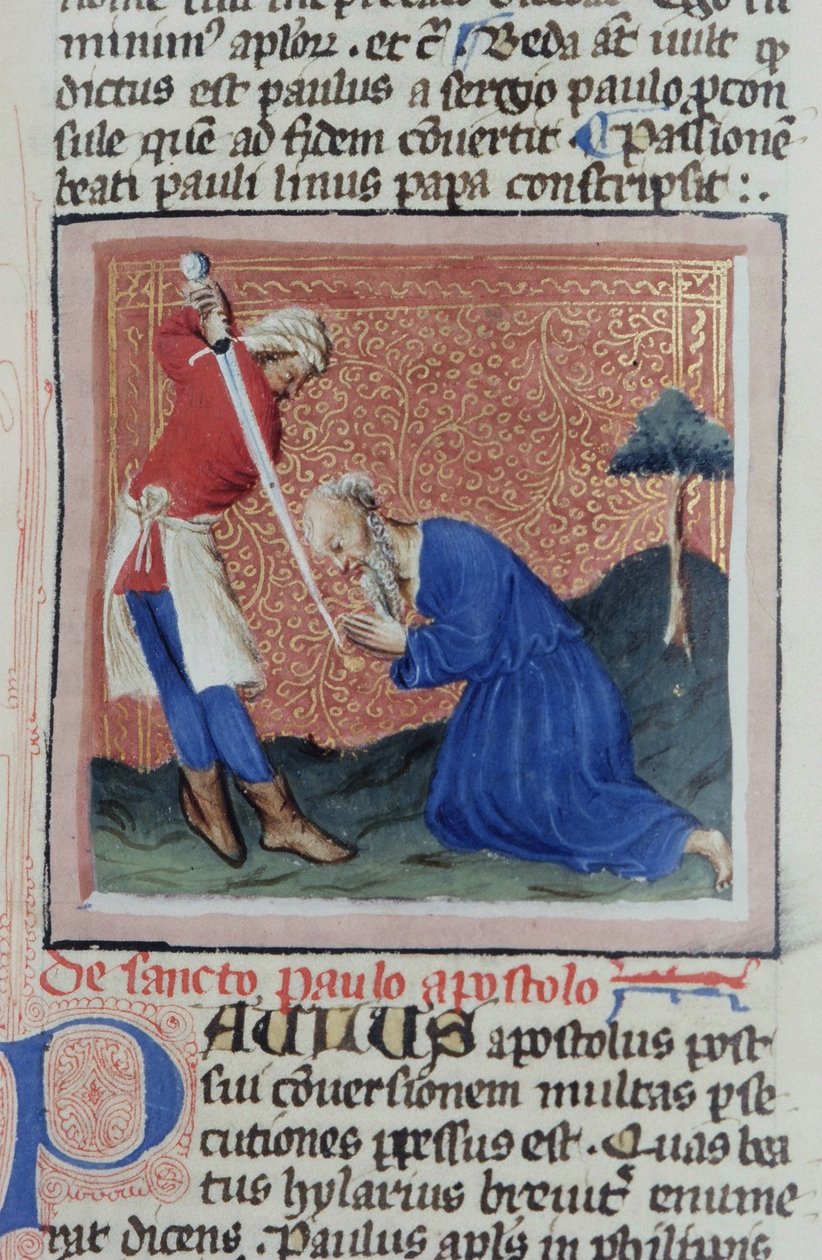 minimꝰ apl̄oꝝ . et c̄ Beda aūt uult ꝙ
dictus est paulus a sergio paulo ꝓcon
sule quē ad fidem cōuertit . Passionē
beati pauli linus papa conscripsit :.
De sancto paulo apostolo
PAULUS apostolus post
sui cōuersionem multas ꝑse
cutiones ꝑpessus est . Quas bea
tus hylarius breuit᷑ enume
rat dicens . Paulus apl̄s in philippis